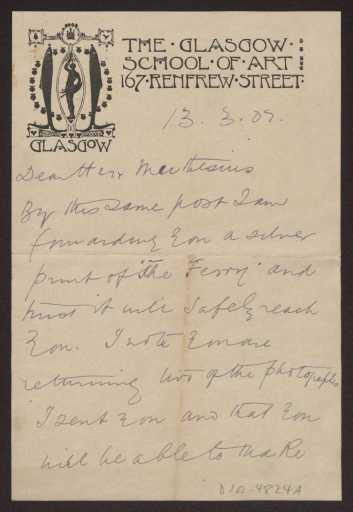 THE · GLASGOW ·
SCHOOL · OF · ART
167 · RENFREW · STREET ·
GLASGOW
13. 3. 07.
Dear Herr Muthesius
By this same post I am
forwarding you a silver
print of "The Ferry" and
trust it will safely reach
you. I note you are
returning two of the photographs
I sent you and that you
will be able to make
D 102-4824A